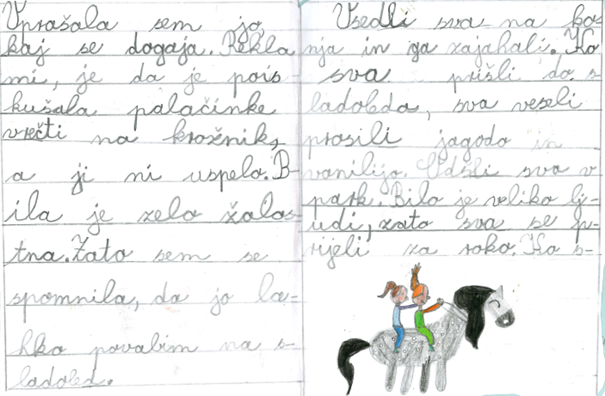 Vprašala sem jo
kaj se dogaja. Rekla
mi, je da je pois-
kušala palačinke
vrečti na krožnik,
a ji ni uspelo. B-
ila je zelo žalos-
tna. Zato sem se
spomnila, da jo la-
hko povabim na s-
ladoled.
Vsedli sva na ko
nja in ga zajahali. Ko
sva prišli do s
ladoleda, sva veseli
prosili jagodo in
vanilijo. Odšli sva v
park. Bilo je veliko lj-
udi, zato sva se p-
rijeli za roko. Ko s-